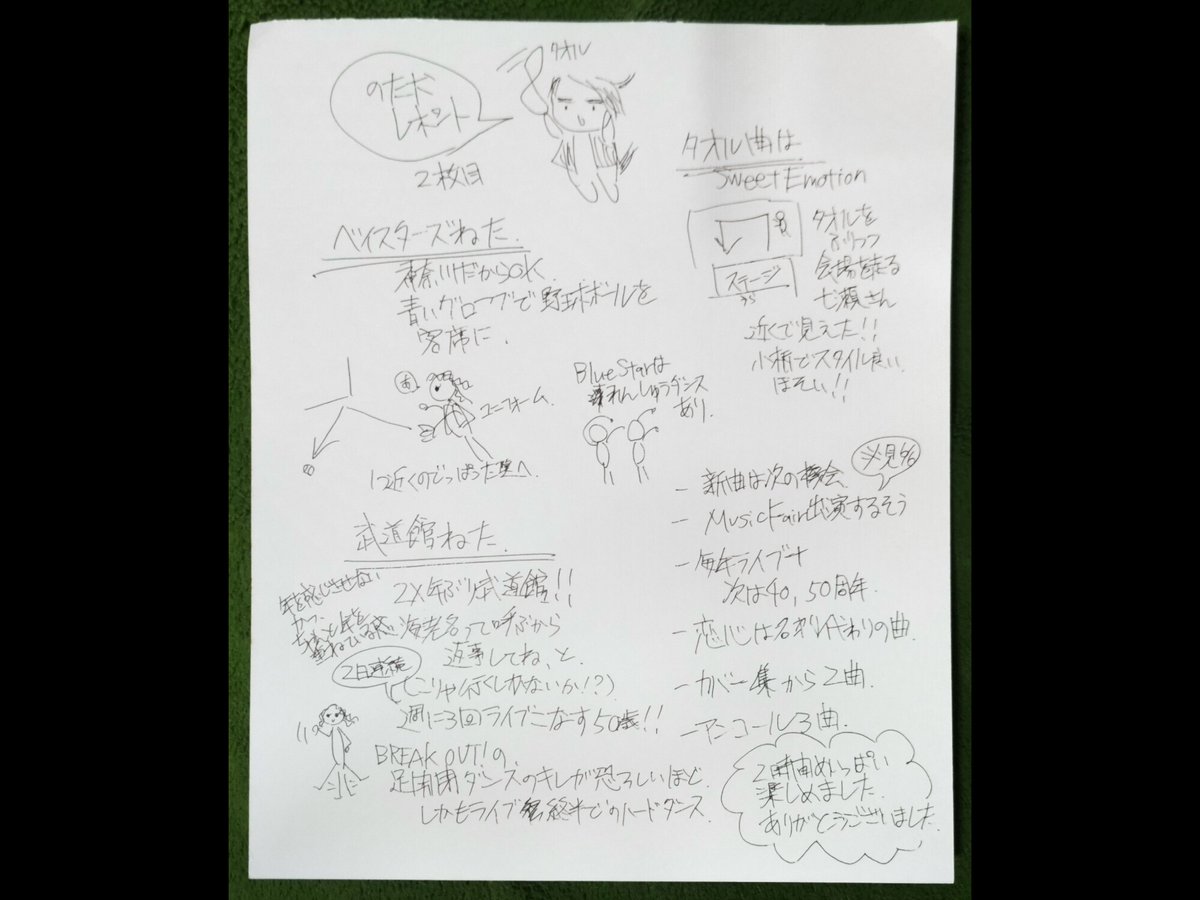 タオル
のただ
レポート
2枚目
ベイスターズねた.
神奈川だからOK.
青いグローブで野球ボールを
客席に.
ユニフォーム.
近くのでっぱった壁へ
Blue Starは
れんしゅうダンス
あり.
武道館ねた.
年を感じさせない
かつ、
2X年ぶり武道館!!
海老名って呼ぶから
返事してね、と.
(こりゃ行くしかないか!?)
2日連続
週に3回ライブこなす50歳!!
BREAK OUT!の
足開閉ダンスのキレが恐ろしいほど
しかもライブ最終半でのハードダンス.
タオル曲は
Sweet Emotion
ステージ
タオルを
ふりつつ
会場を走る
七瀬さん
近くで見えた!!
小柄でスタイル良い.
ほそい!!
ー 新曲は次の機会.
ー Music Fair出演するそう
ー 毎年ライブ+
次は40,50周年.
ー 恋心は名刺代わりの曲.
ー カバー集から2曲.
ー アンコール3曲.
2時間めいっぱい
楽しめました.
ありがとうございました.